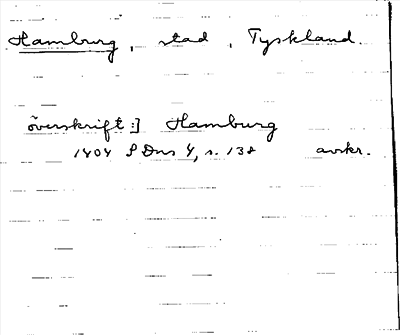 Hamburg, stad, Tyskland.
överskrift:] Hamburg
1404 SDns 4, s. 138 avskr.